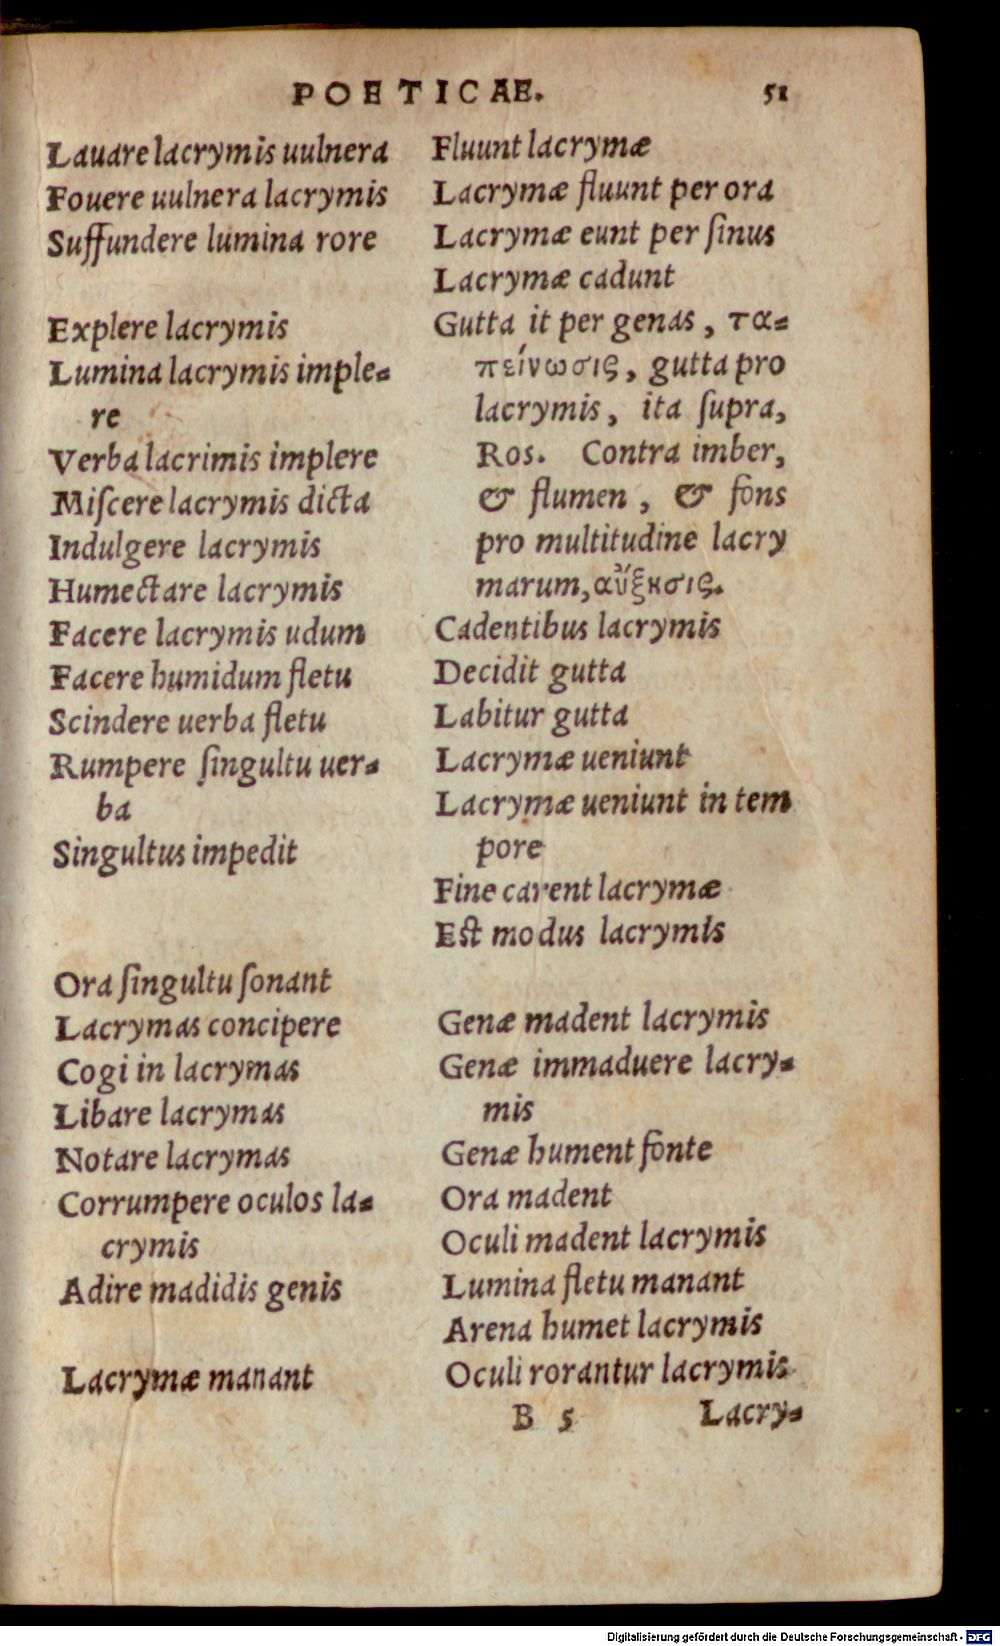 POETICAE.
51
Lauare lacrymis uulnera
Fouere uulnera lacrymis
Suffundere lumina rore
Explere lacrymis
Lumina lacrymis imple=
re
Verba lacrimis implere
Miſcere lacrymis dicta
Indulgere lacrymis
Humectare lacrymis
Facere lacrymis udum
Facere humidum fletu
Scindere uerba fletu
Rumpere ſingultu uer=
ba
Singultus impedit
Ora ſingultu ſonant
Lacrymas concipere
Cogi in lacrymas
Libare lacrymas
Notare lacrymas
Corrumpere oculos la=
crymis
Adire madidis genis
Lacrymæ manant
Fluunt lacrymæ
Lacrymæ fluunt per ora
Lacrymæ eunt per ſinus
Lacrymæ cadunt
Gutta it per genas, τα=
πείνωσις, gutta pro
lacrymis, ita ſupra,
Ros. Contra imber,
& flumen, & fons
pro multitudine lacry
marum, αὔξησις.
Cadentibus lacrymis
Decidit gutta
Labitur gutta
Lacrymæ ueniunt
Lacrymæ ueniunt in tem
pore
Fine carent lacrymæ
Est modus lacrymis
Genæ madent lacrymis
Genæ immaduere lacry=
mis
Genæ hument fonte
Ora madent
Oculi madent lacrymis
Lumina fletu manant
Arena humet lacrymis
Oculi rorantur lacrymis
B 5
Lacry=
Digitalisierung gefördert durch die Deutsche Forschungsgemeinschaft - DFG